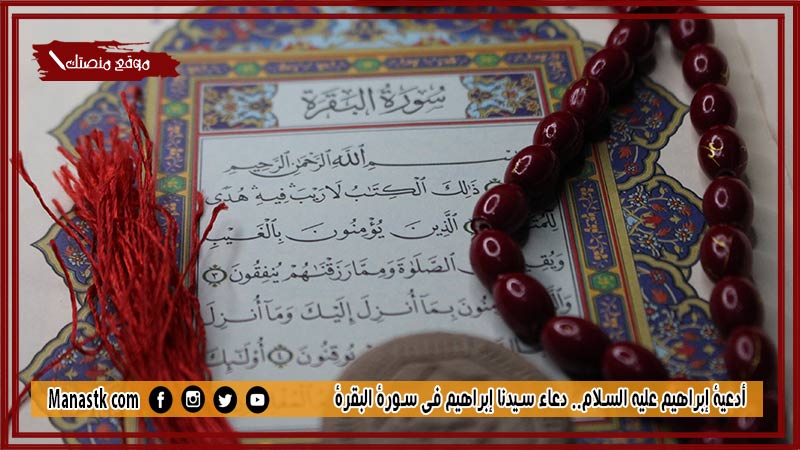 موقع منصتك
سُورَةُ البَقَرَةِ
بِسْمِ اللَّهِ الرَّحْمَنِ الرَّحِيمِ
ذَلِكَ الْكِتَبُ لَا رَيْبَ فِيهِ هُدًى
الَّذِينَ يُؤْمِنُونَ بِالْغَيْبِ
الصَّلَوٰةَ وَمِمَّا رَزَقْنَاهُمْ يُنفِقُونَ ٣
بِمَا أُنزِلَ إِلَيْكَ وَمَا أُنزِلَ
يُوقِنُونَ ٤ أُوْلَٰئِكَ
أدعية إبراهيم عليه السلام.. دعاء سيدنا إبراهيم فى سورة البقرة
Manastk com